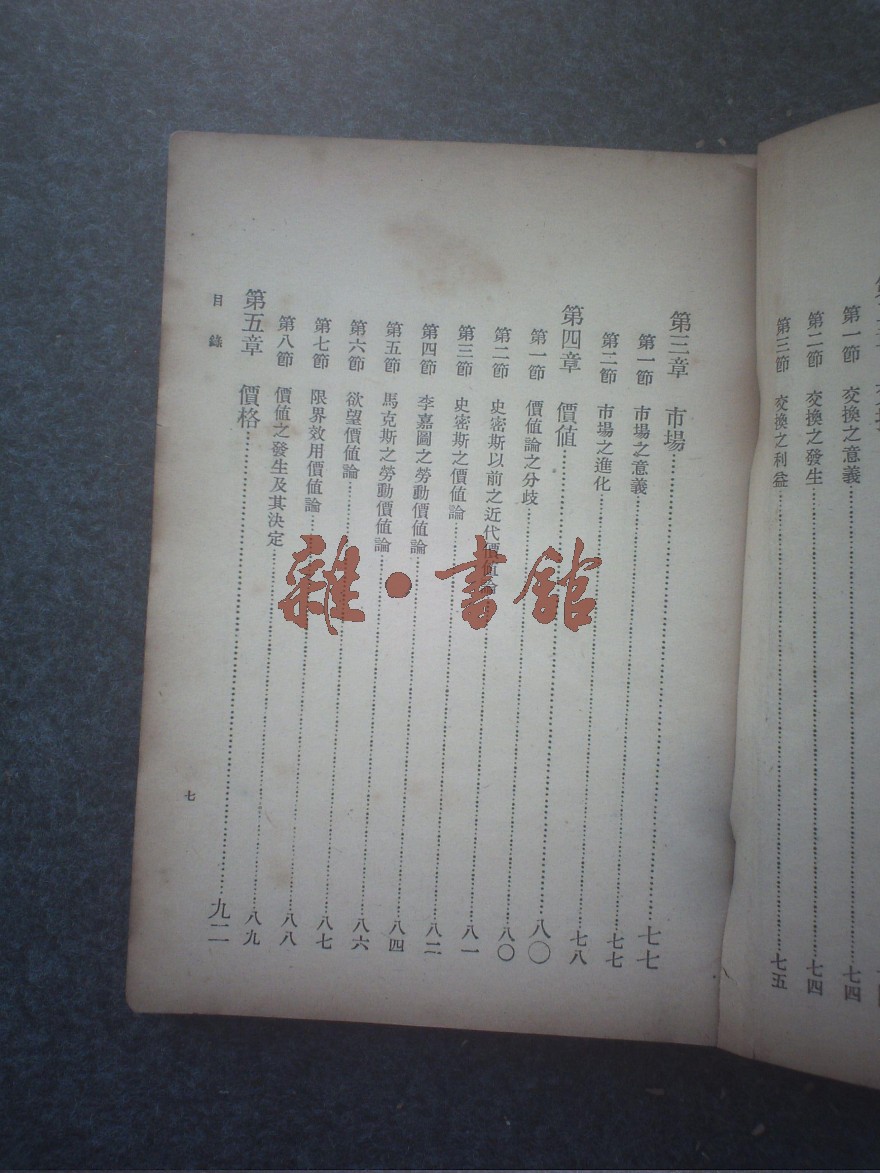 第一節 交換之意義……七四
第二節 交換之發生……七四
第三節 交換之利益……七五
第三章 市場……七七
第一節 市場之意義……七七
第二節 市場之進化……七八
第四章 價値……八〇
第一節 價値論之分歧……八〇
第二節 史密斯以前之近代價値論……八一
第三節 史密斯之價値論……八二
第四節 李嘉圖之勞動價値論……八四
第五節 馬克斯之勞動價値論……八六
第六節 欲望價値論……八七
第七節 限界效用價値論……八八
第八節 價値之發生及其決定……八九
第五章 價格……九二
目錄
七
雜·書館